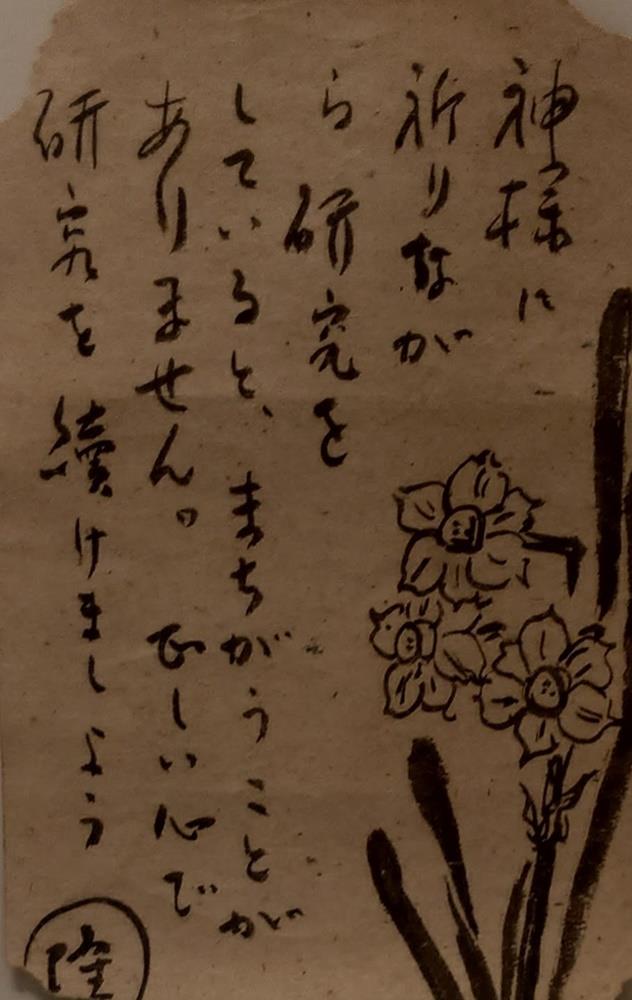 神様に
祈りなが
ら 研究を
していると、まちがうことが
ありません。 正しい心で
研究を 續けましよう
隆